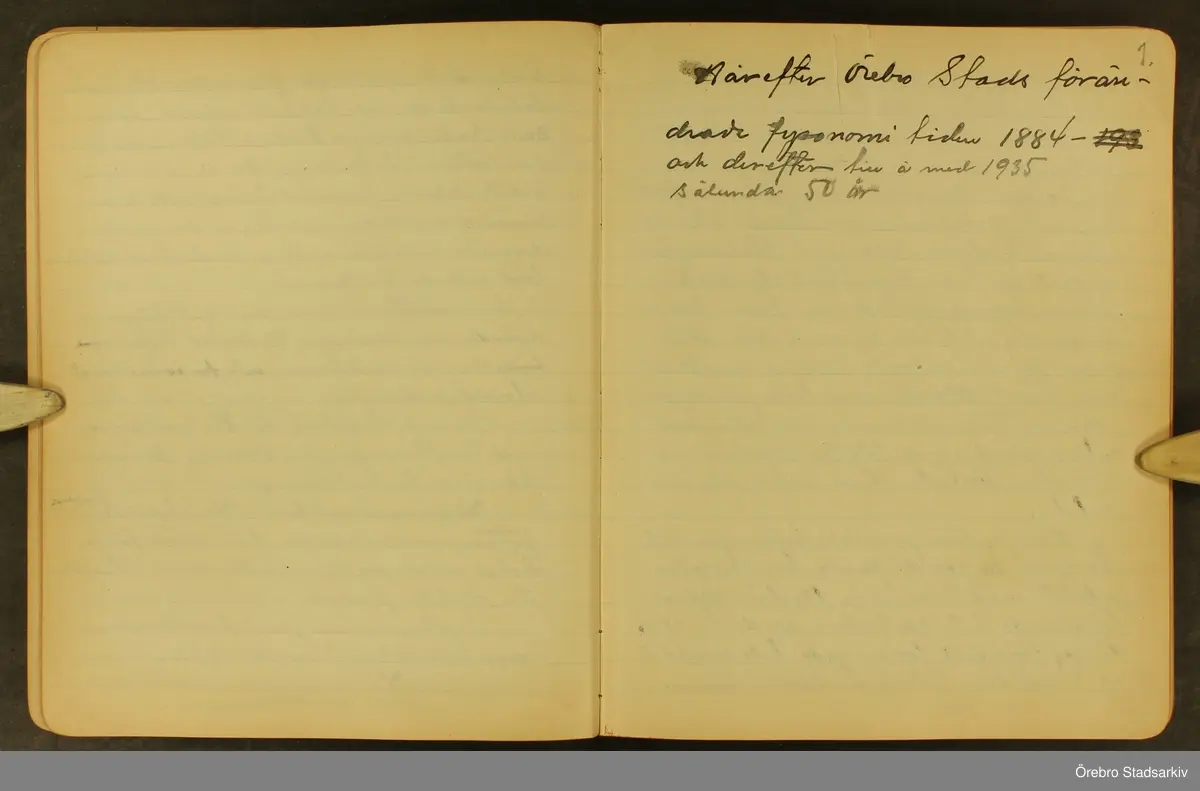 1.
Härefter Örebro Stads förän-
drade fysonomi tiden 1884 –
och derefter till å med 1935
sålunda 50 år
Örebro Stadsarkiv